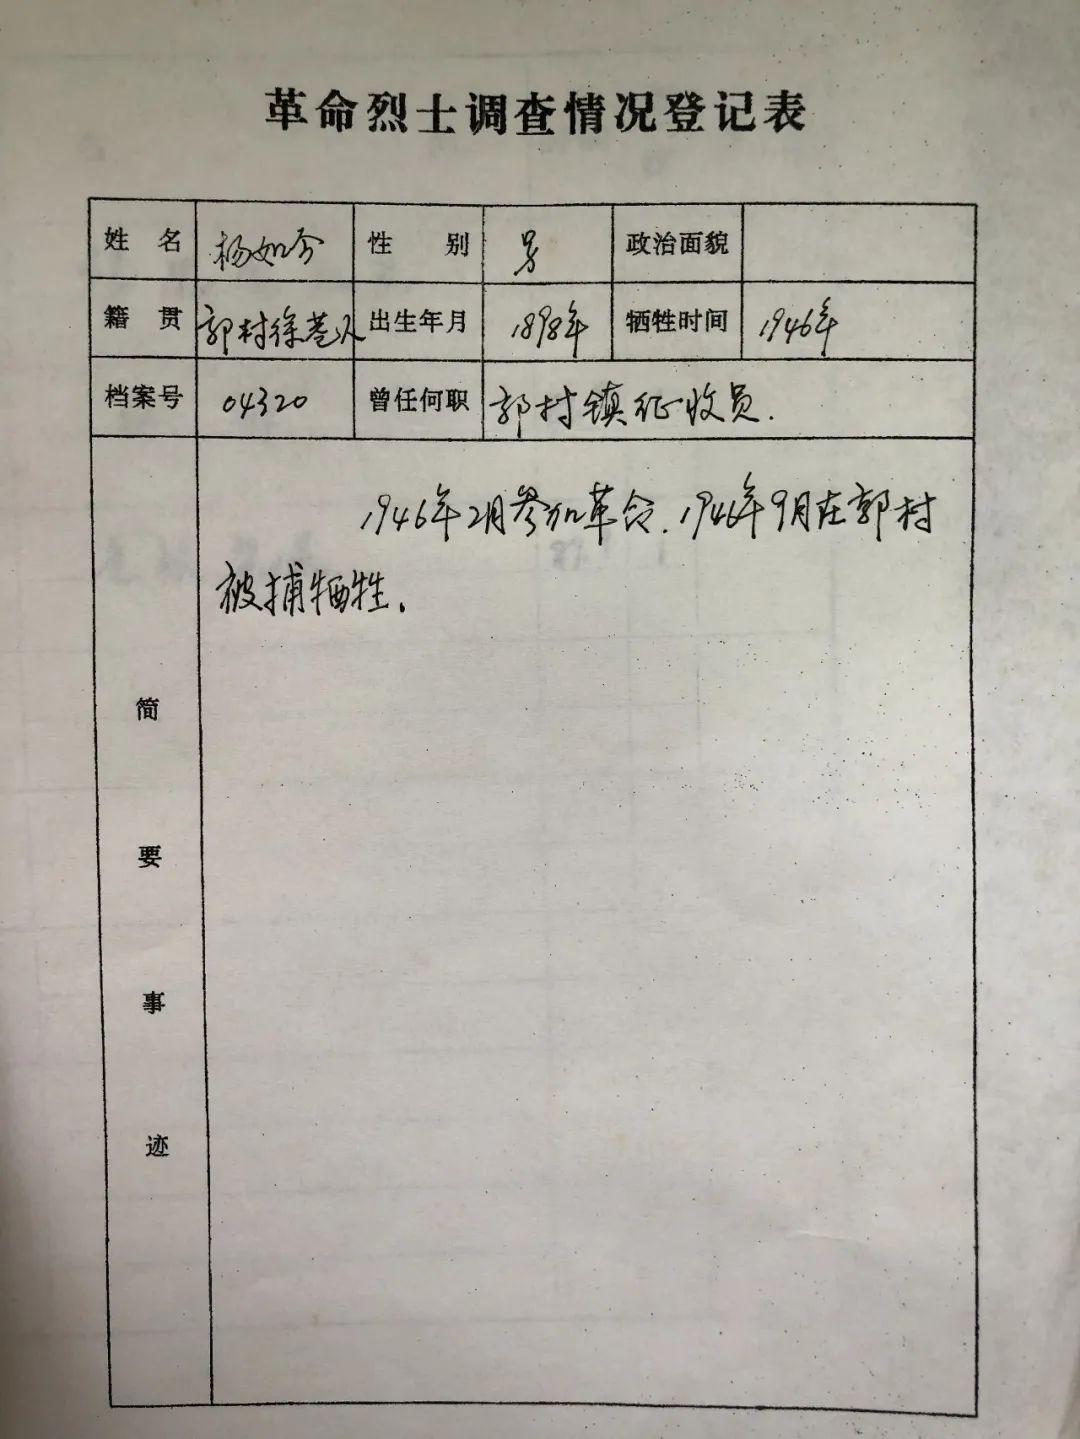 革命烈士调查情况登记表
姓 名 杨如 性 别 男 政治面貌
籍 贯 郭村徐巷人 出生年月 1898年 牺牲时间 1946年
档案号 04320 曾任何职 郭村镇征收员.
1946年2月参加革命.1946年9月在郭村
被捕牺牲.
简
要
事
迹